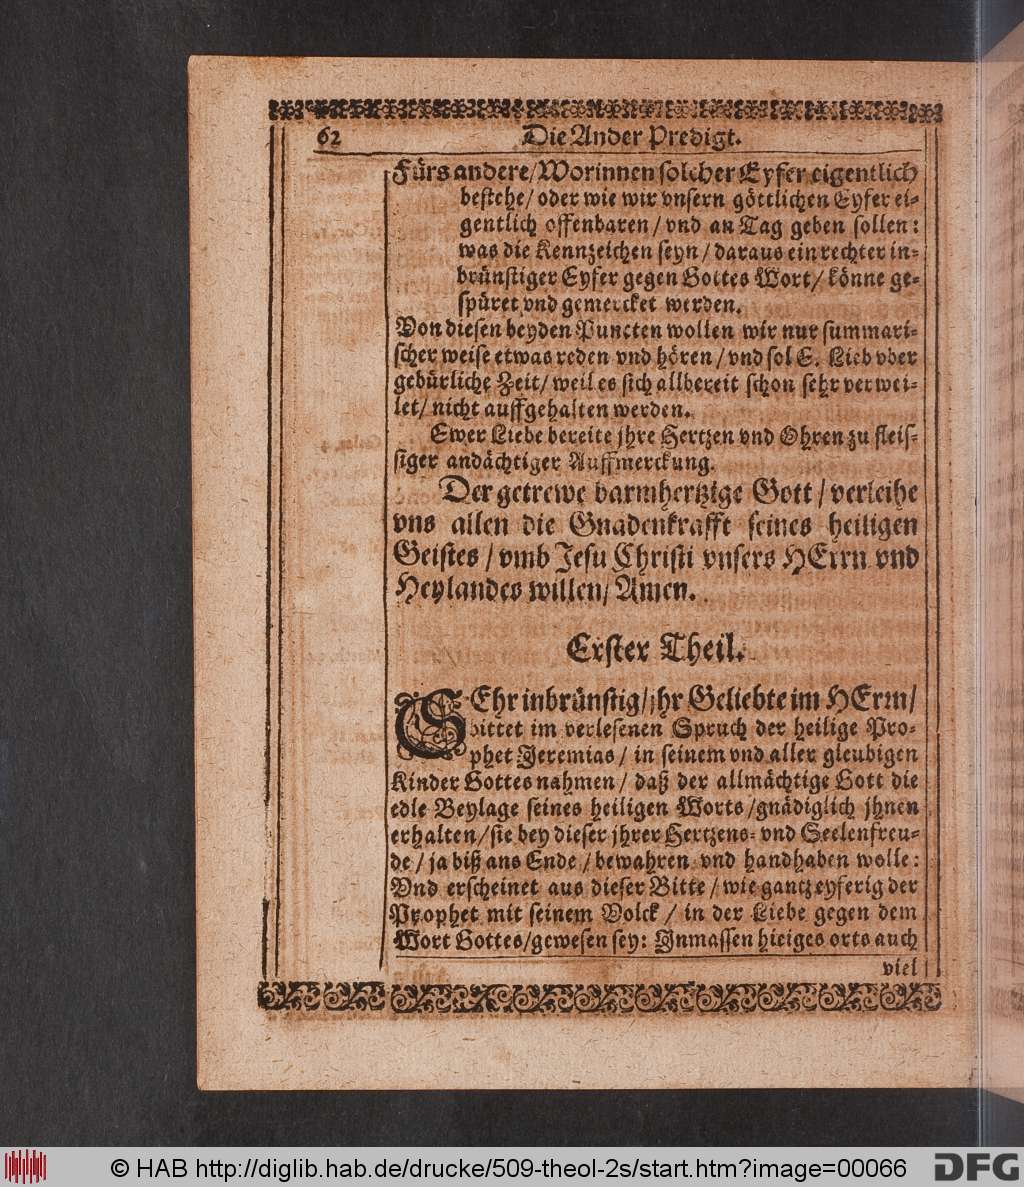 62
Die Ander Predigt.
Fürs andere/ Worinnen solcher Eyfer eigentlich
bestehe/ oder wie wir vnsern göttlichen Eyfer ei-
gentlich offenbaren/ vnd an Tag geben sollen:
was die Kennzeichen seyn/ daraus ein rechter in-
brünstiger Eyfer gegen Gottes Wort/ könne ge-
spüret vnd gemercket werden.
Von diesen beyden Puncten wollen wir nur summari-
scher weise etwas reden vnd hören/ vnd sol E. Lieb vber
gebürliche Zeit/ weil es sich allbereit schon sehr verwei-
let/ nicht auffgehalten werden.
Ewer Liebe bereite jhre Hertzen vnd Ohren zu fleis-
siger andächtiger Auffmerckung.
Der getrewe barmhertzige Gott/ verleihe
vns allen die Gnadenkrafft seines heiligen
Geistes/ vmb Jesu Christi vnsers HErrn vnd
Heylandes willen/ Amen.
Erster Theil.
SEhr inbrünstig/ jhr Geliebte im HErrn/
bittet im verlesenen Spruch der heilige Pro-
phet Jeremias/ in seinem vnd aller gleubigen
Kinder Gottes nahmen/ daß der allmächtige Gott die
edle Beylage seines heiligen Worts/ gnädiglich jhnen
erhalten/ sie bey dieser jhrer Hertzens- vnd Seelenfreu-
de/ ja biß ans Ende/ bewahren vnd handhaben wolle:
Vnd erscheinet aus dieser Bitte/ wie gantz eyferig der
Prophet mit seinem Volck/ in der Liebe gegen dem
Wort Gottes/ gewesen sey: Inmassen hieiges orts auch
viel
© HAB http://diglib.hab.de/drucke/509-theol-2s/start.htm?image=00066
DFG